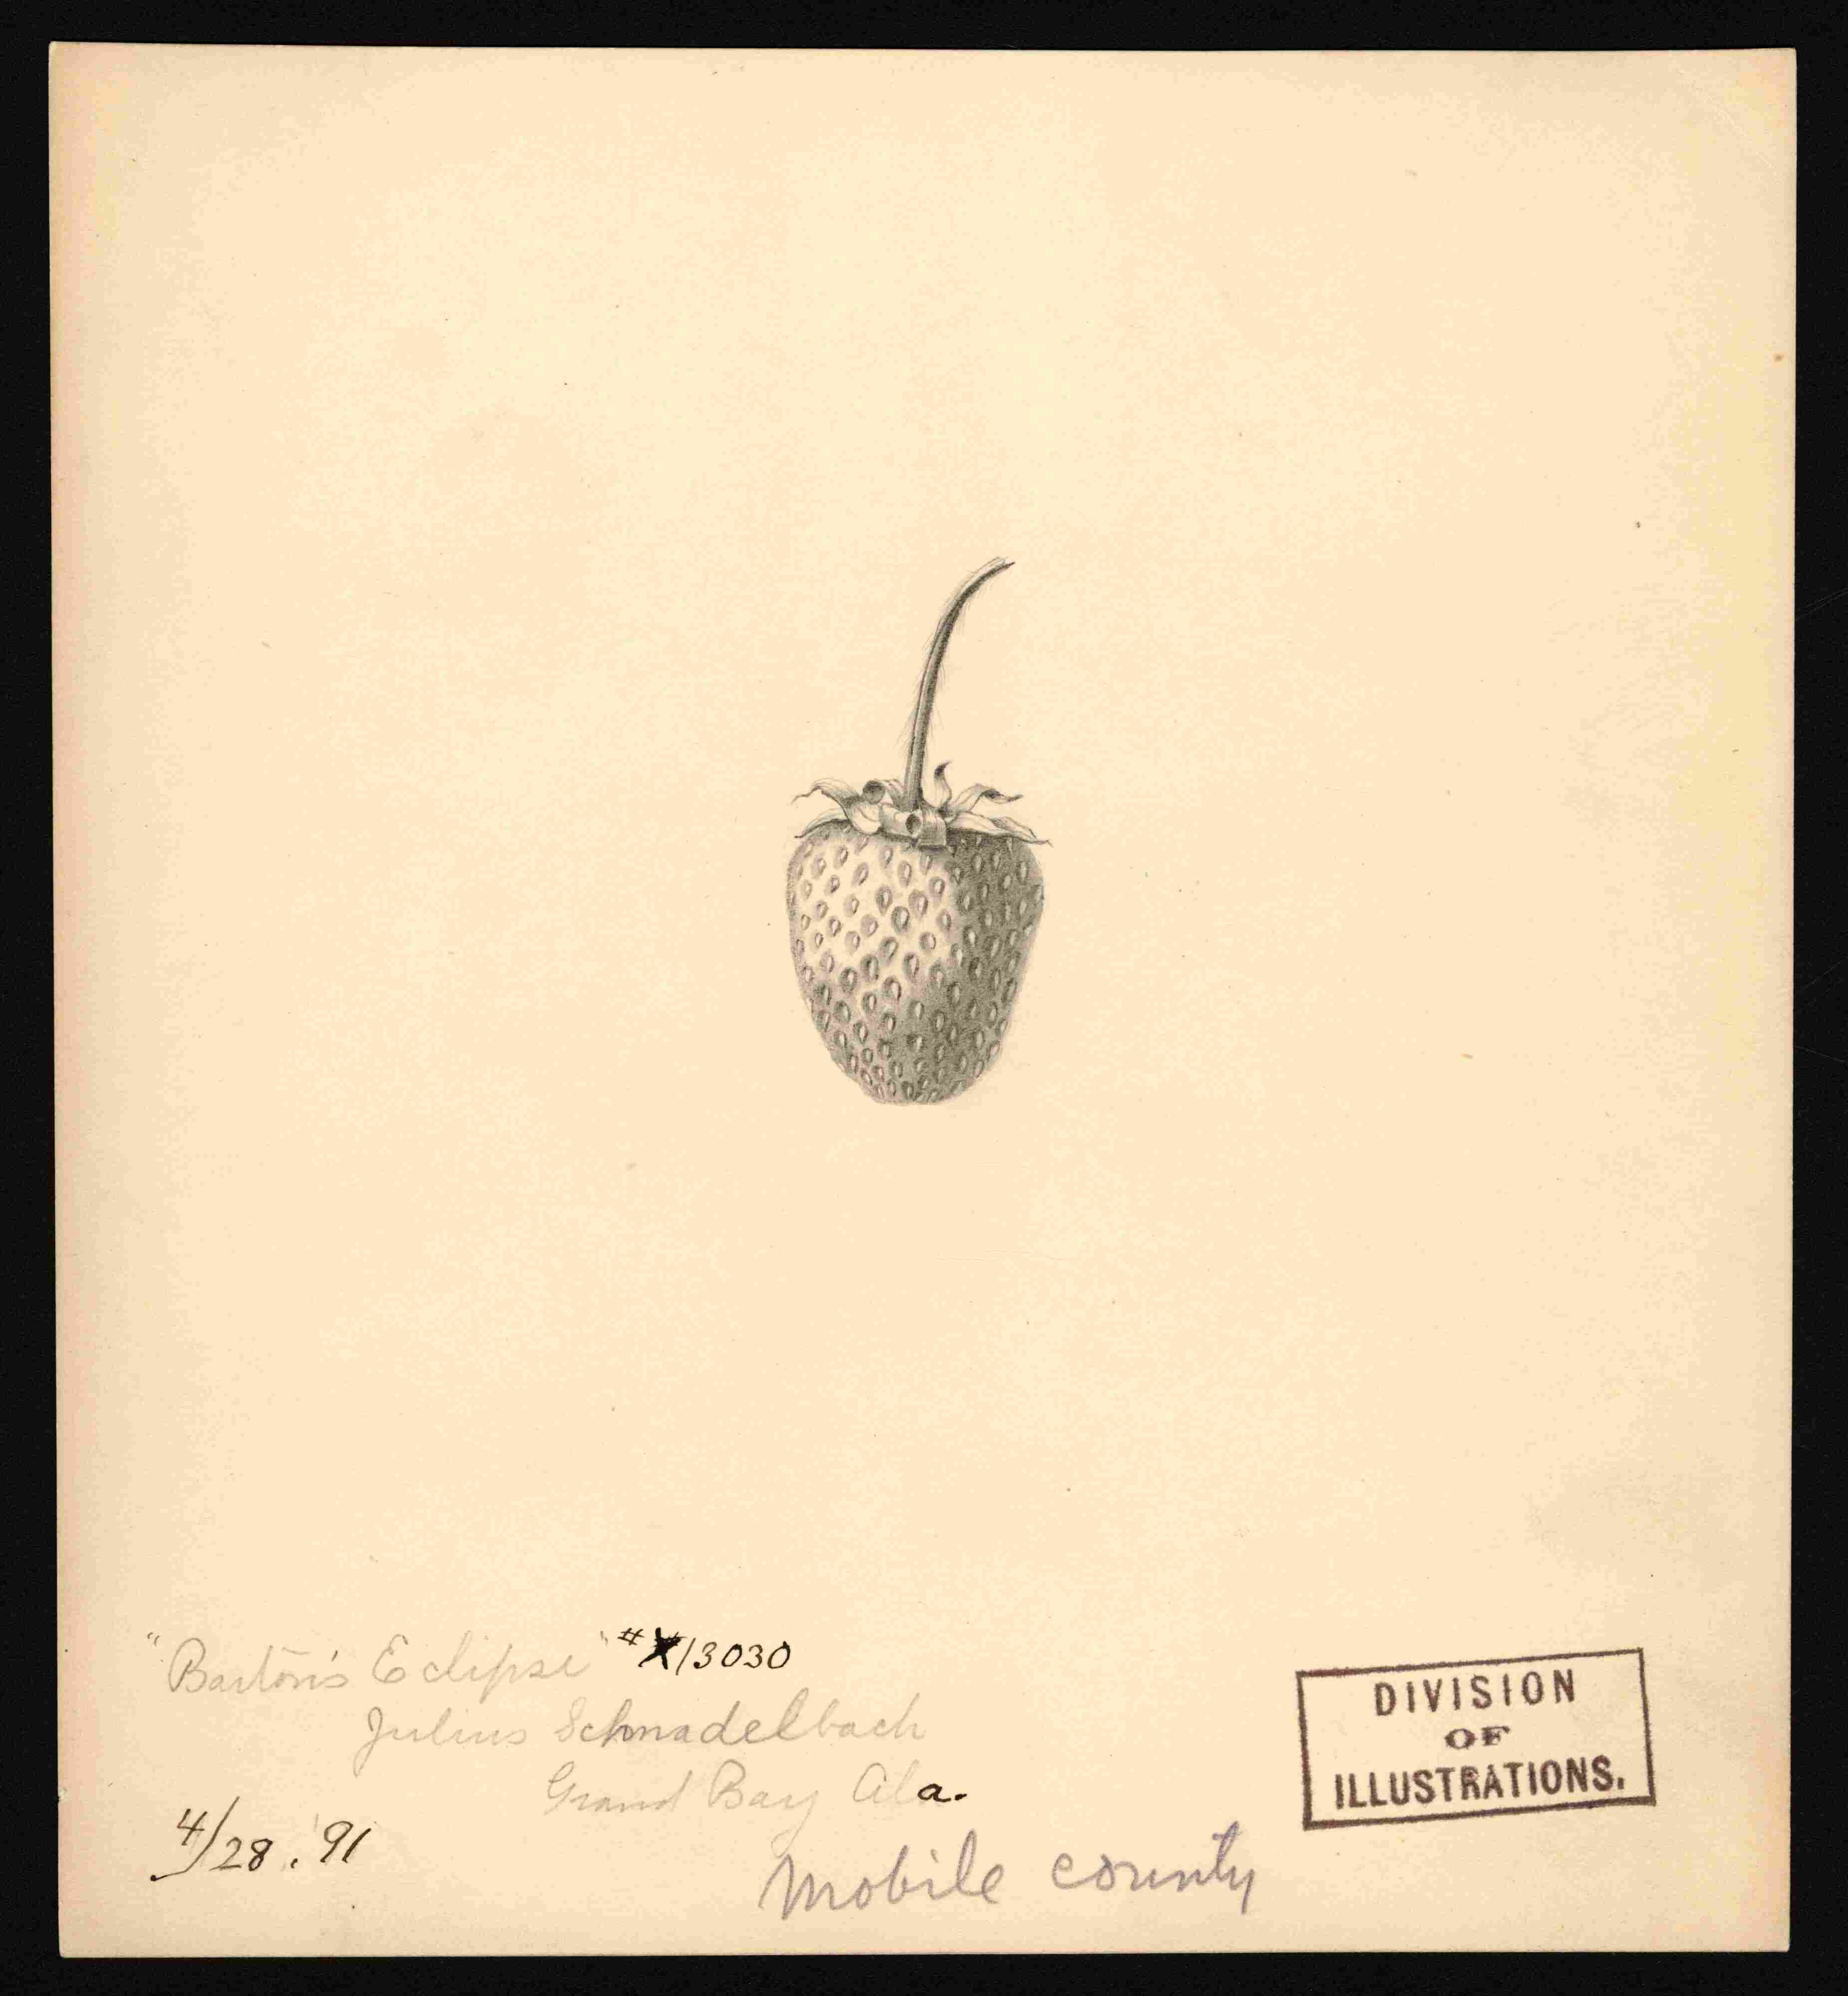 "Barton's Eclipse" #13030
Julius Schnadelbach
Grand Bay Ala.
4/28.'91
Mobile county
DIVISION
OF
ILLUSTRATIONS.